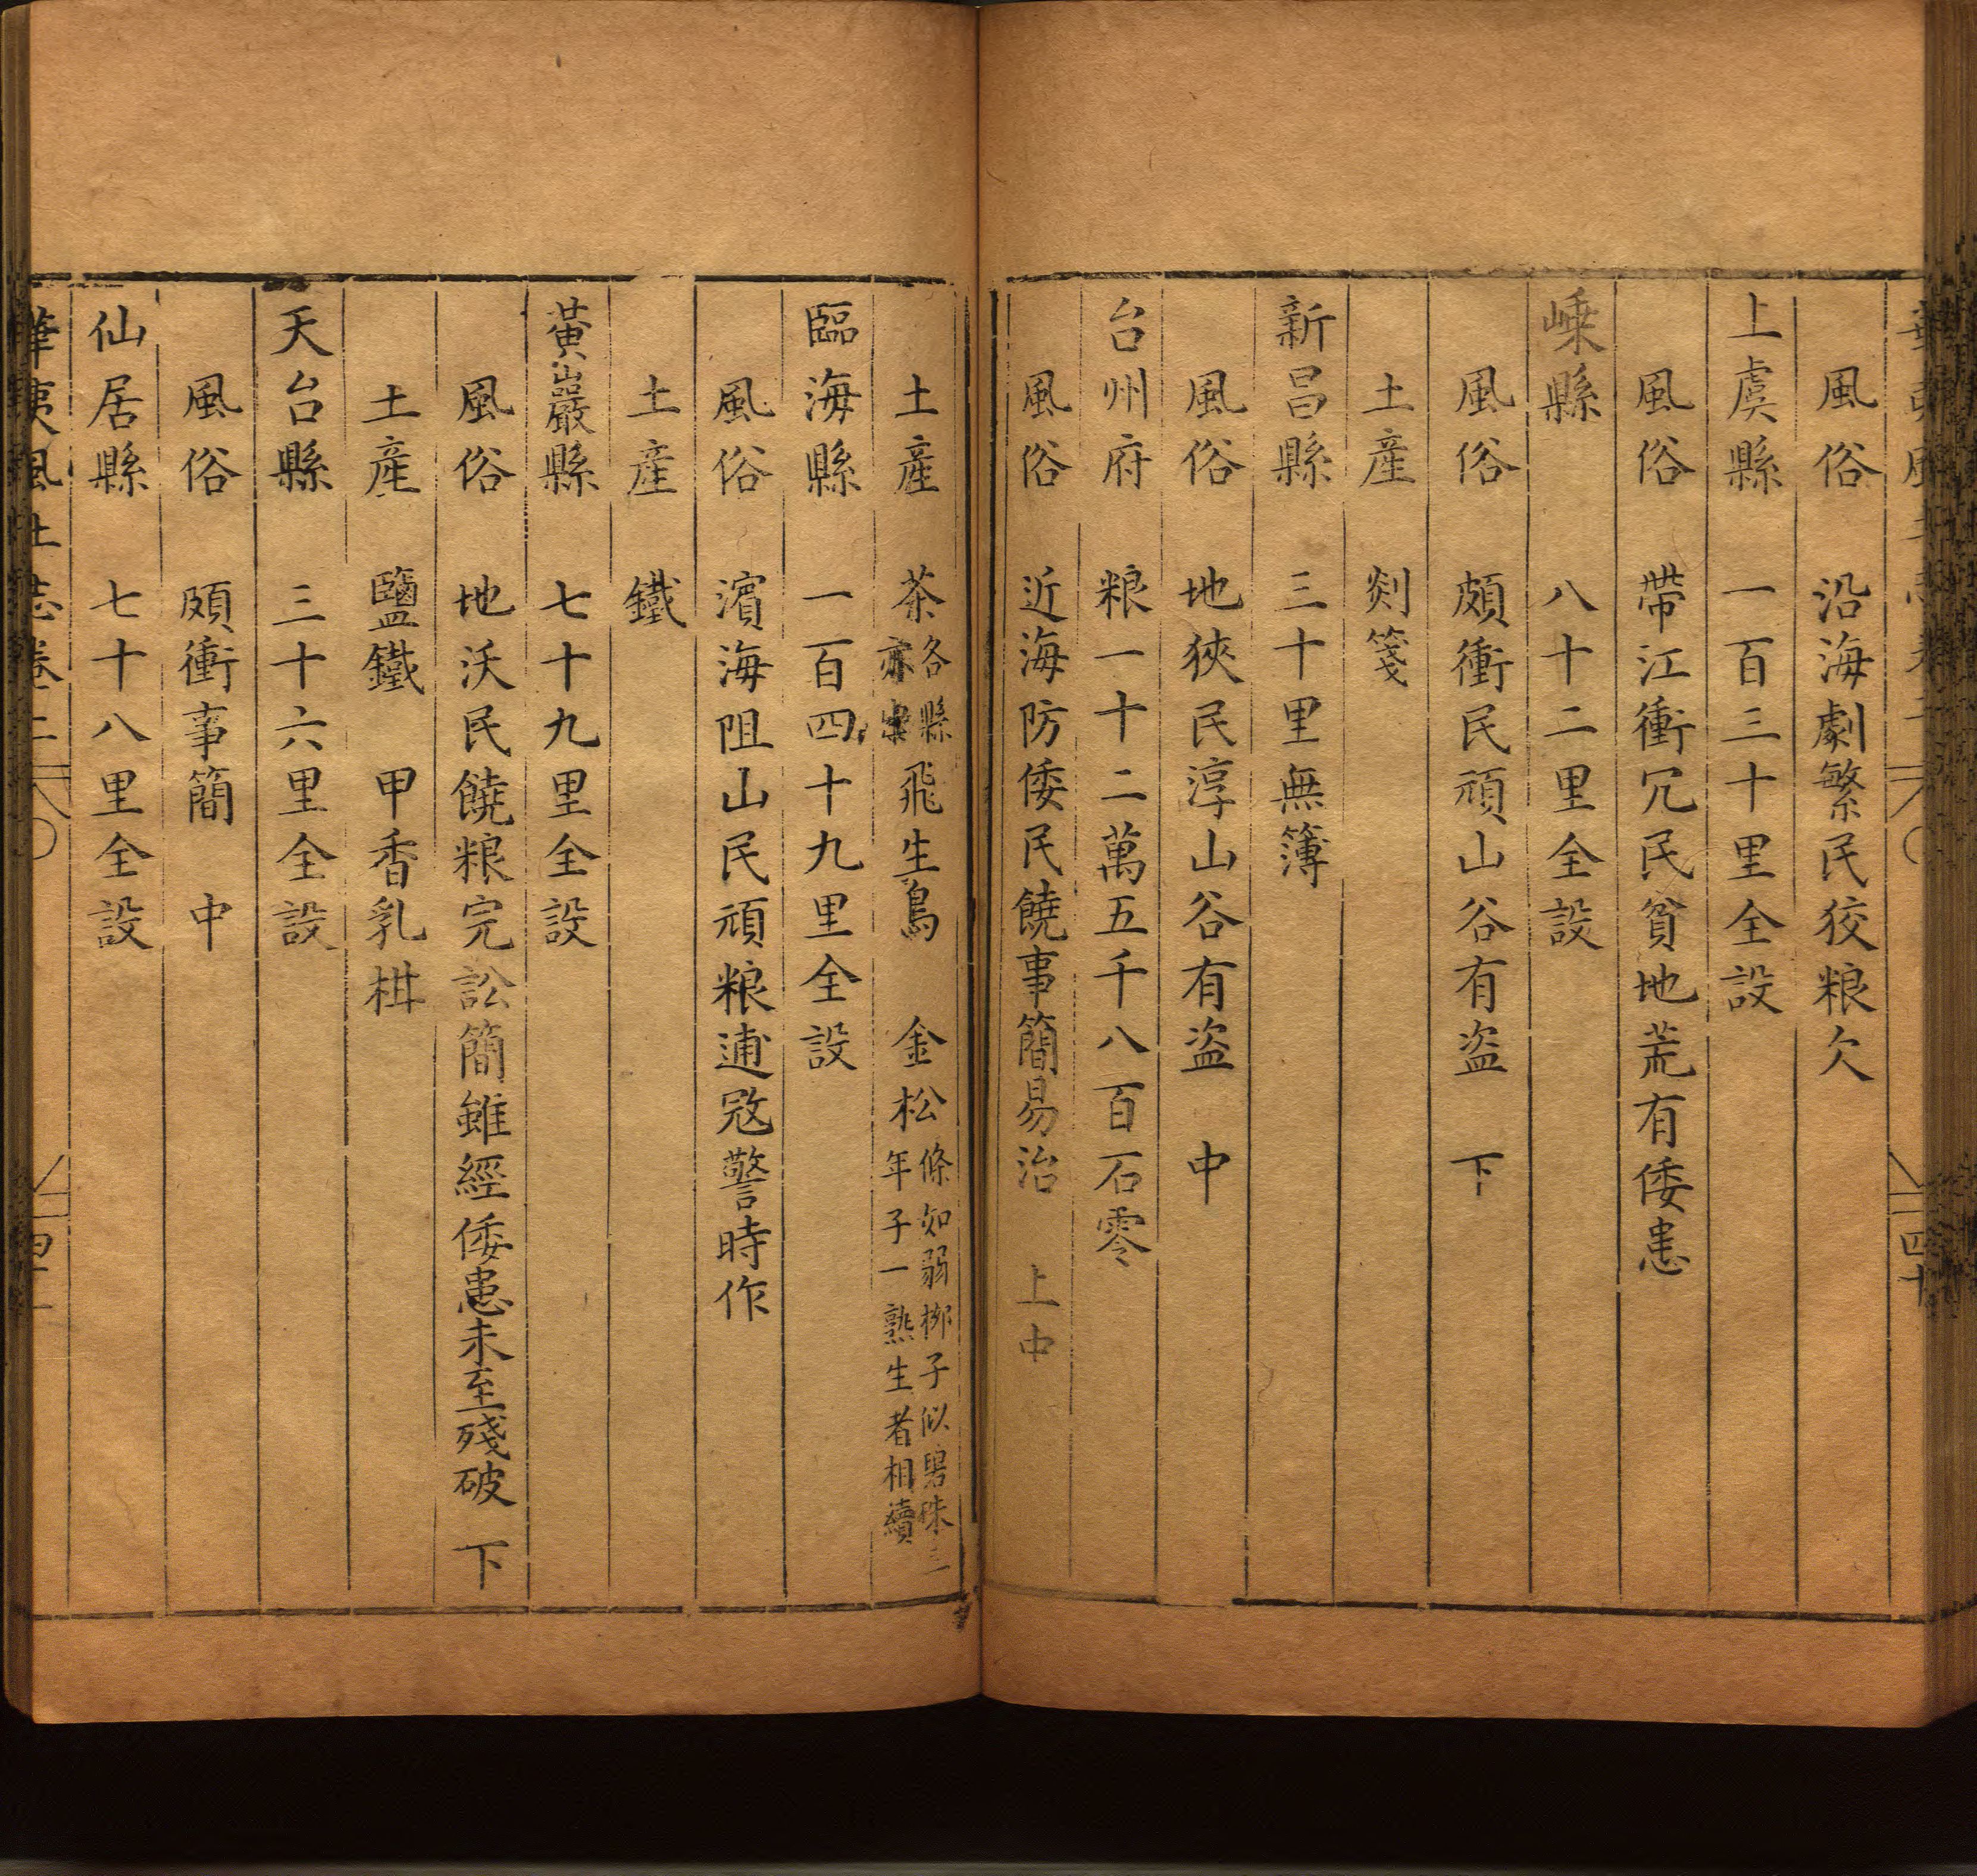 風俗 沿海劇繁民狡粮欠
上虞縣 一百三十里全設
風俗 帶江衝冗民貧地荒有倭患
嵊縣 八十二里全設
風俗 頗衝民頑山谷有盜 下
土產 剡箋
新昌縣 三十里無簿
風俗 地狹民淳山谷有盜 中
台州府 粮一十二萬五千八百石零
風俗 近海防倭民饒事簡易治 上中
土產 茶各縣亦出 飛生鳥 金松條如弱栁子似碧珠三年子一熟生者相續
臨海縣 一百四十九里全設
風俗 濱海阻山民頑粮逋㓂警時作
土產 鐵
黃巖縣 七十九里全設
風俗 地沃民饒粮完訟簡雖經倭患未至殘破 下
土產 鹽鐵 甲香乳柑
天台縣 三十六里全設
風俗 頗衝事簡 中
仙居縣 七十八里全設
華夷風土志卷二